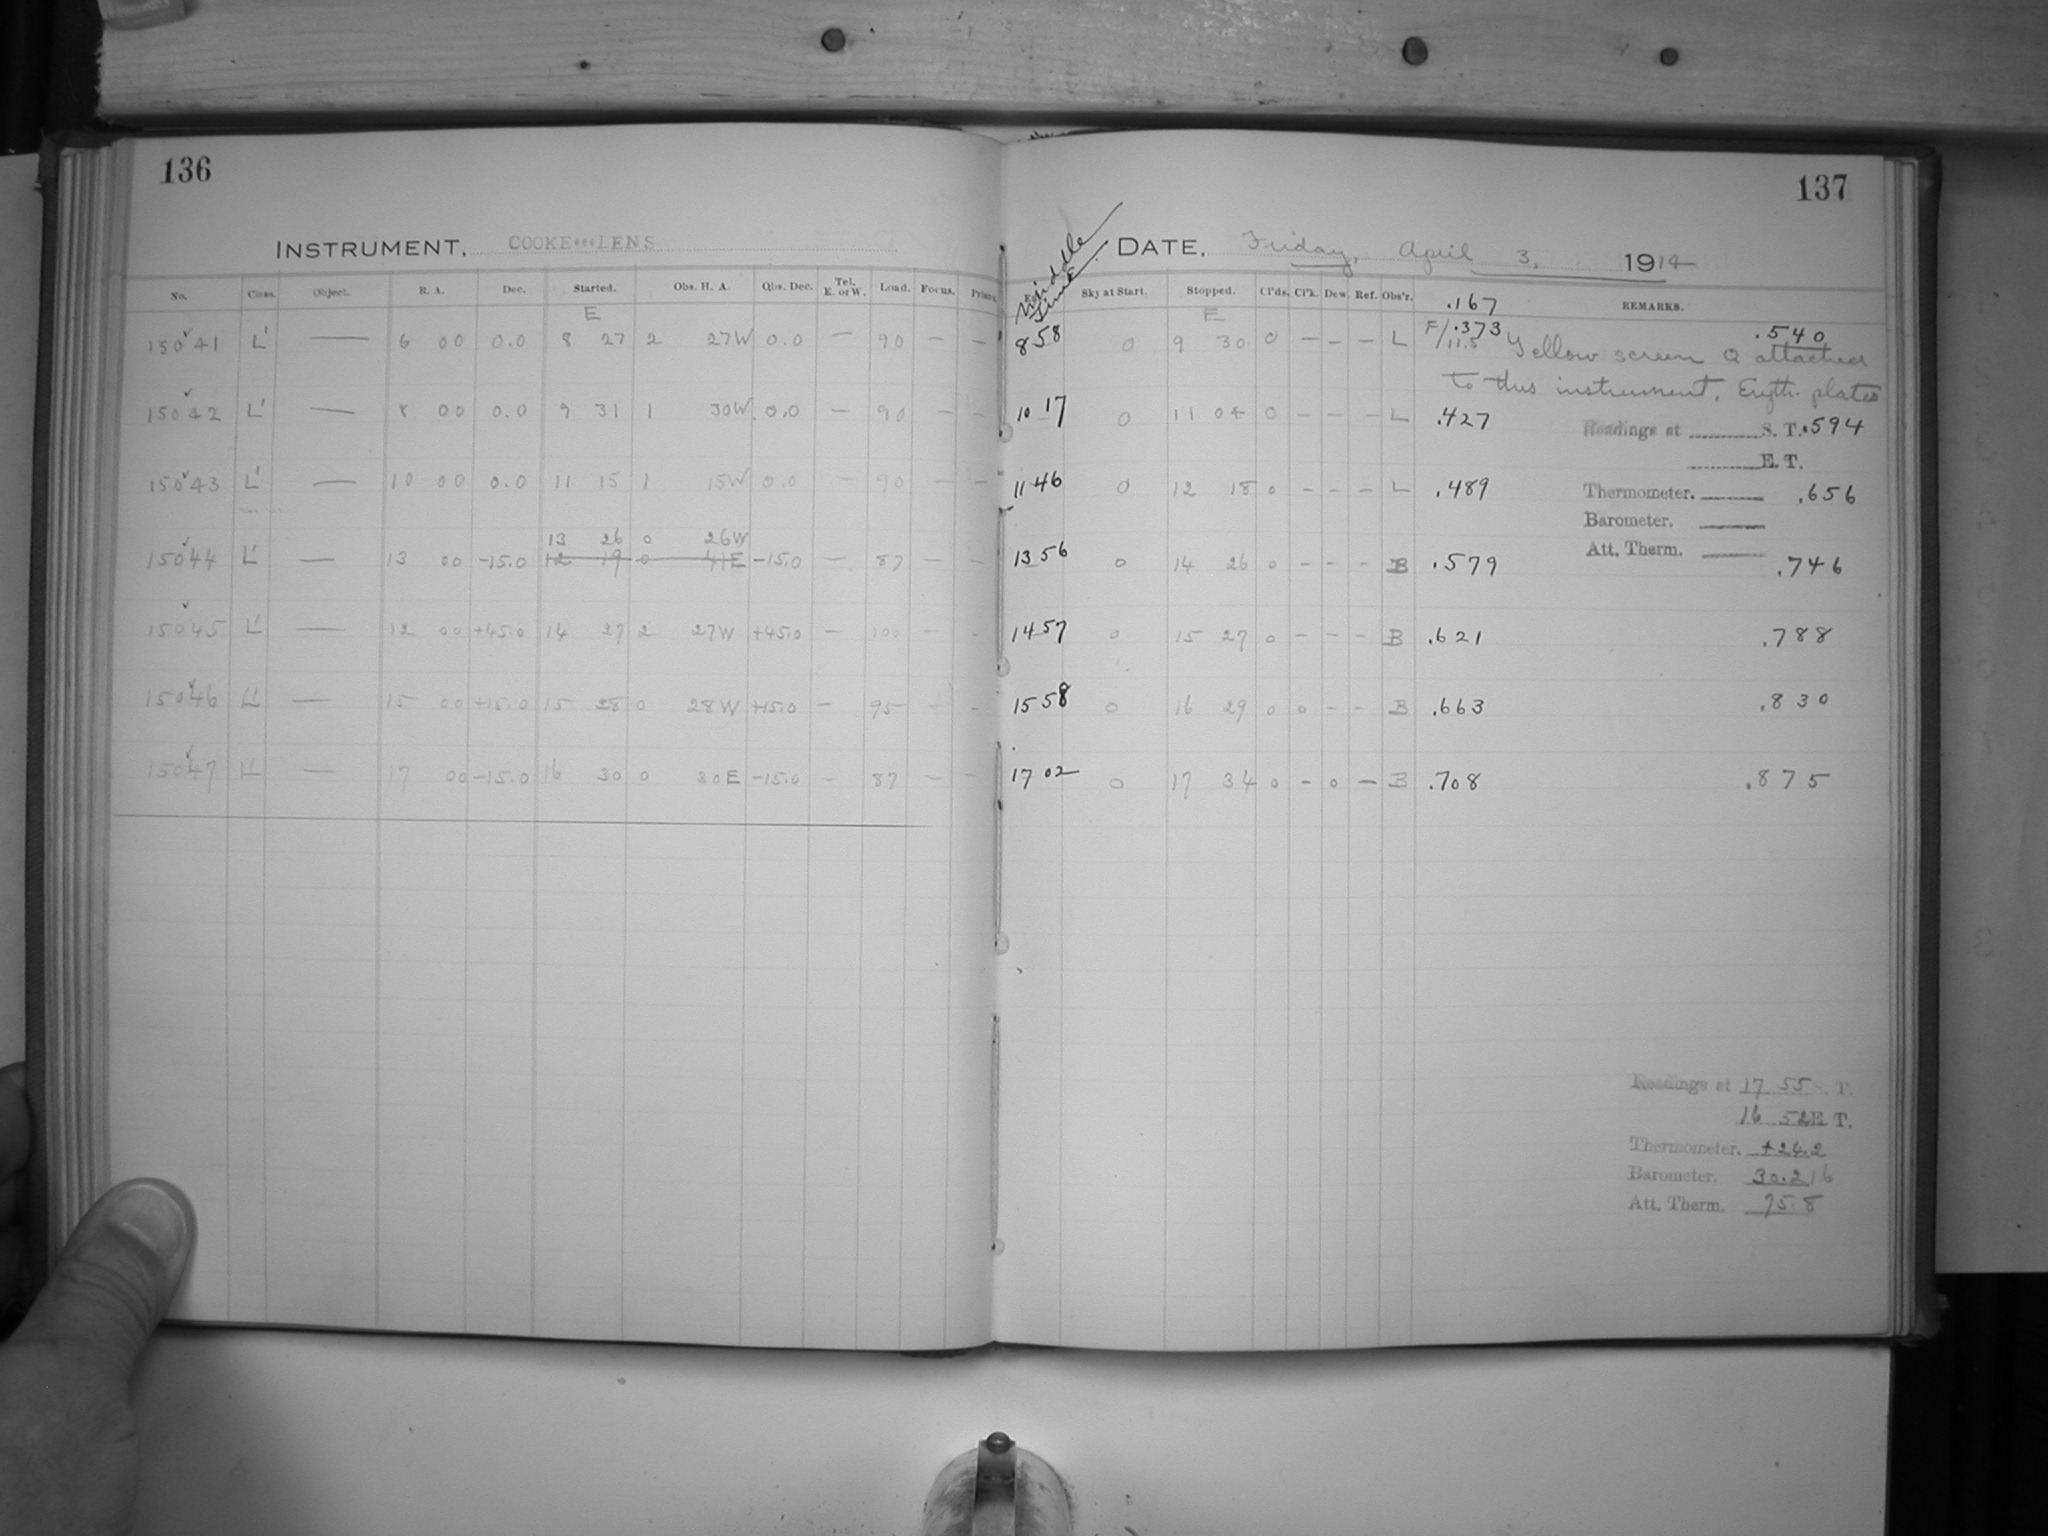 136
INSTRUMENT. COOKE LENS
No. Class. Object. R. A. Dec. Started. Obs. H. A. Obs. Dec. Tel. E. or W. Load. Focus.
E
15041 L' — 6 00 0.0 8 27 2 27W 0.0 — 90 — —
15042 L' — 8 00 0.0 9 31 1 30W 0.0 — 90 — —
15043 L' — 10 00 0.0 11 15 1 15W 0.0 — 90 — —
13 26 0 26W
15044 L' — 13 00 -15.0 12 19 0 41E -15.0 — 87 — —
15045 L' — 12 00 +45.0 14 27 2 27W +45.0 — 100 — —
15046 L' — 15 00 +15.0 15 28 0 28W +15.0 — 95 — —
15047 L' — 17 00 -15.0 16 30 0 30E -15.0 — 87 — —
137
Middle Time
DATE. Friday, April 3, 1914
Sky at Start. Stopped. Cl'ds. Cl'k. Dew. Ref. Obs'r. .167 REMARKS.
E
8 58 0 9 30 0 — — — L F/11.5 .373 .540
Yellow screen Q attached
to this instrument, Eryth. plates
10 17 0 11 04 0 — — — L .427 Readings at S. T. .594
E. T.
11 46 0 12 18 0 — — — L .489 Thermometer. — .656
Barometer. —
Att. Therm. —
13 56 0 14 26 0 — — — B .579 .746
14 57 0 15 27 0 — — — B .621 .788
15 58 0 16 29 0 0 — — B .663 .830
17 02 0 17 34 0 — 0 — B .708 .875
Readings at 17 55 S. T.
16 52 E. T.
Thermometer. +24.2
Barometer. 30.216
Att. Therm. 75.8